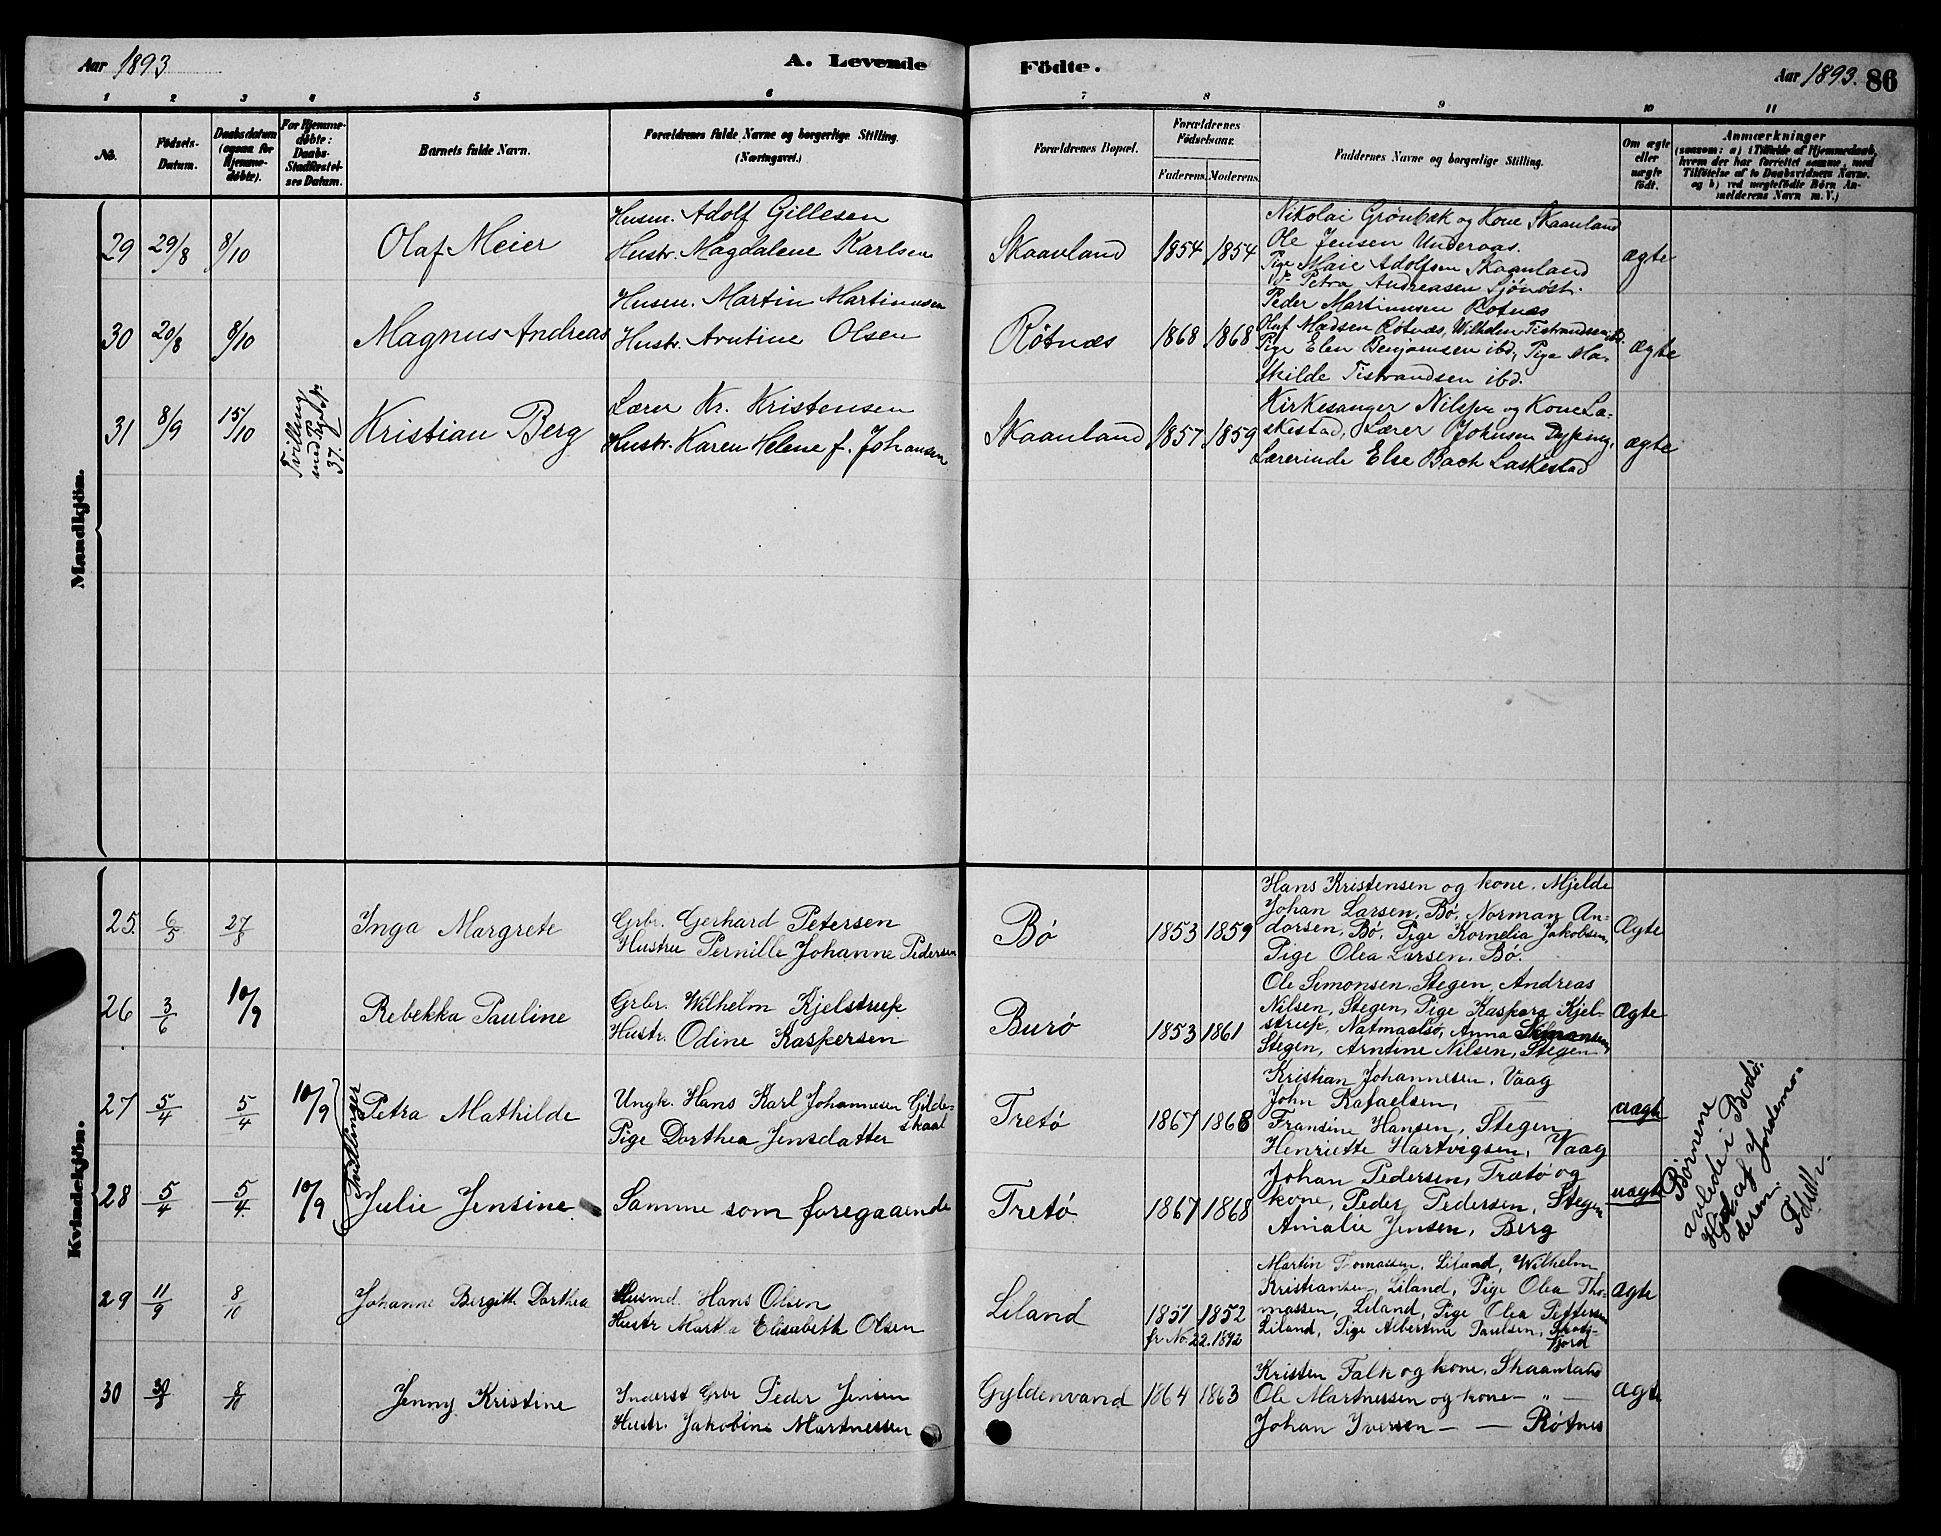 Aar 1893
A. Levende Födte.
Aar 1893. 86
1 2 3 4 5 6 7 8 9 10 11
No.
Födsels-
Datum.
Daabsdatum
(ogsaa for
Hjemme-
döbte).
For Hjemme-
döbte:
Daabs-
Stadfæstel-
ses Datum.
Barnets fulde Navn.
Forældrenes fulde Navne og borgerlige Stilling.
(Næringsvei.)
Forældrenes Bopæl.
Forældrenes
Födselsaar.
Faderens. Moderens.
Faddernes Navne og borgerlige Stilling.
Om ægte
eller
uægte
födt.
Anmærkninger
(saasom: a) i Tilfælde af Hjemmedaab,
hvem der har forrettet samme, med
Tilföielse af to Daabsvidners Navne.
og b) ved uægtefödte Börn An-
melderens Navn m. V.)
Mandkjön.
29 29/8 8/10
Olaf Meier
Husm. Adolf Gillesen
Hustr. Magdalene Karlsen
Skaanland 1854 1854
Nikolai Grönbæk og Kone Skaanland
Ole Jensen Underaas.
Pige Maie Adolfsen Skaanland
Petra Andreasen
ægte
30 20/8 8/10
Magnus Andreas
Husm. Martin Martinussen
Hustr. Arntine Olsen
Røtnæs 1868 1868
Peder Martinusen Rotnæs
Olaf Madsen Røtnæs, Wilhelm Tistrandsen ibd.
Pige Elen Benjamsen ibd, Pige Ma-
thilde Tistrandsen ibd.
ægte
31 8/9 15/10
Tvilling
med Pigebt
37.
Kristian Berg
Lærer Kr. Kristensen
Hustr. Karen Helene f. Johansen
Skaanland 1857 1859
Kirkesanger Nilsen og Kone La-
skestad, Lærer Johnsen Dyping,
Lærerinde Else Bach Laskestad
ægte
Kvindekjön.
25. 6/5 27/8
Inga Margrete
Grbr. Gerhard Petersen
Hustru Pernille Johanne Pedersen
Bø 1853 1859
Hans Kristensen og kone. Mjelde
Johan Larsen, Bø, Norman An-
dorsen, Bø, Pige Kornelia Jakobsen,
Pige Olea Larsen. Bø.
Ægte
26 3/6 10/9
Rebekka Pauline
Grbr. Wilhelm Kjelstrup.
Hustr. Odine Kaspersen
Burø 1853 1861
Ole Simonsen, Stegen, Andreas
Nilsen, Stegen, Pige Kaspara Kjel-
strup, Natmaalsø, Anna Simonsen,
Stegen, Arntine Nilsen, Stegen
Ægte
27 5/4 5/4 10/9
Tvillinger
Petra Mathilde
Ungk. Hans Karl Johannesen Gilde-
skaal
Pige Dorthea Jensdatter
Tretø 1867 1868
Kristian Johannesen, Vaag
John Rafaelsen, —
Fransine Hansen, Stegen,
Henriette Hartvigsen, Vaag
uægte
28 5/4 5/4 10/9
Julie Jensine.
Samme som foregaaende
Tretø 1867 1868
Johan Pedersen, Trætø og
kone, Peder Pedersen, Stegen
Amalie Jensen, Berg
uægte
Børnene
avlede i Bodø.
Hjd. af Jordemo-
deren.
29 11/9 8/10
Johanne Bergitte Dorthea
Husmd. Hans Olsen
Hustr Martha Elisabeth Olsen
Liland 1851 1852
fr No. 22. 1892
Martin Tomassen, Liland, Wilhelm
Kristiansen, Liland, Pige Olea Tho-
massen, Liland, Pige Olea Pettersen
Liland, Pige Albertine Paulsen,
fjord
Ægte
30 30/8 8/10
Jenny Kristine
Inderst Grbr Peder Jensen
Hustr. Jakobine Martnessen
Gyldenvand 1864 1863
Kristen Falk og kone, Skaanland
Ole Martnessen og kone — „ —
Johan Iversen — — Røtnes
Ægte